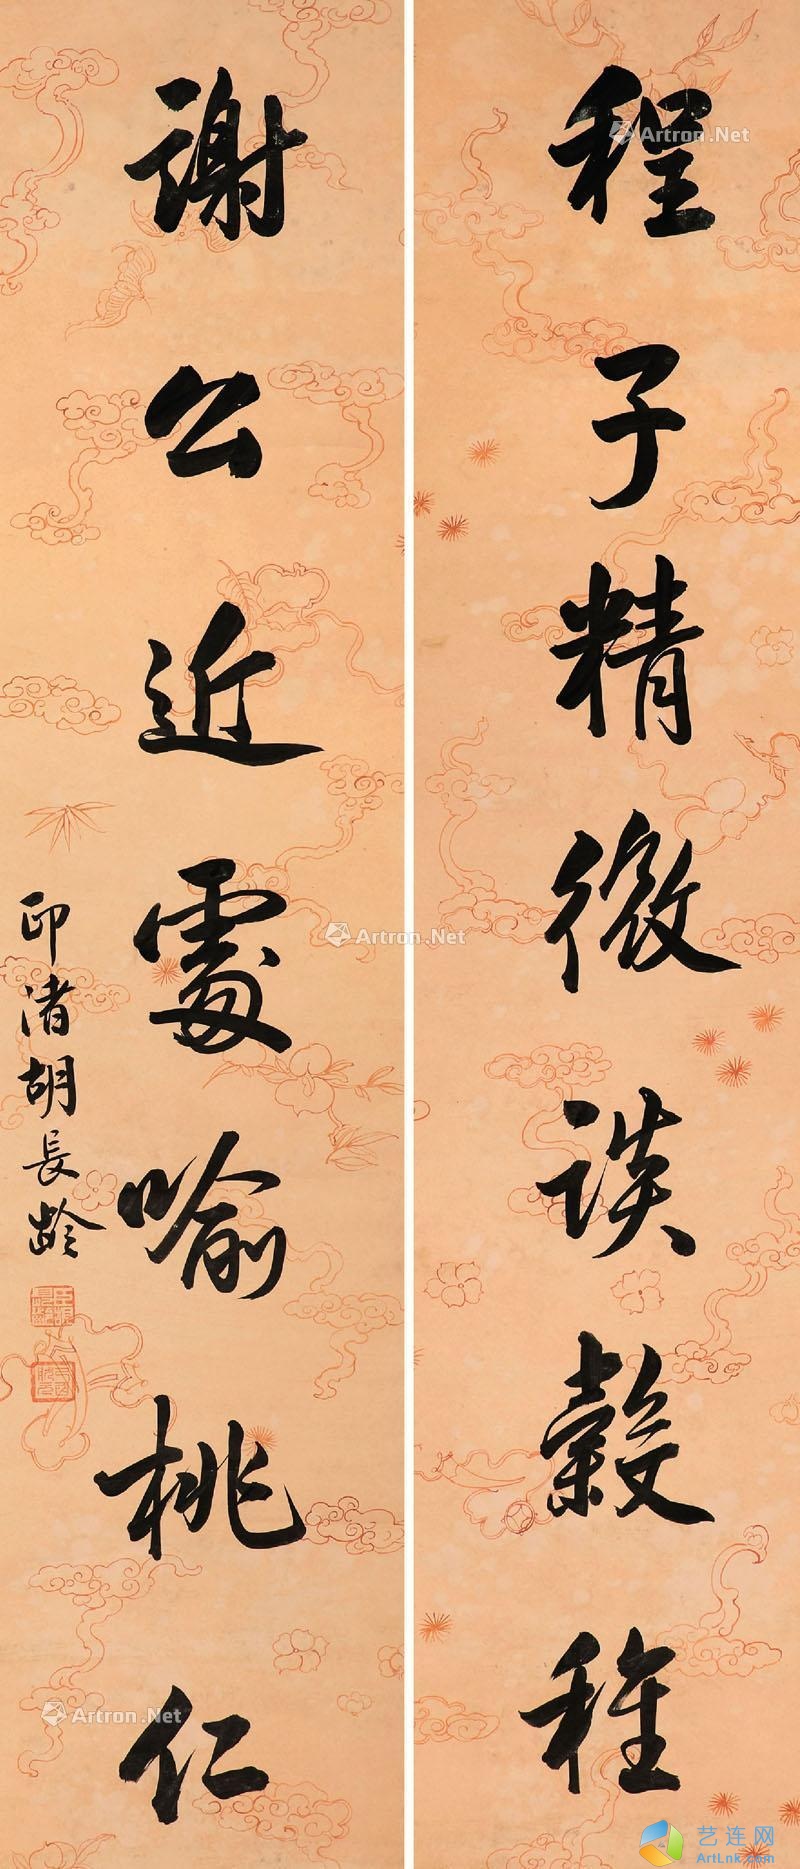 程子精微談穀種
謝公近處喻桃仁
印渚胡長齡
Artron.Net
Artron.Net
Artron.Net
艺连网
ArtLnk.com